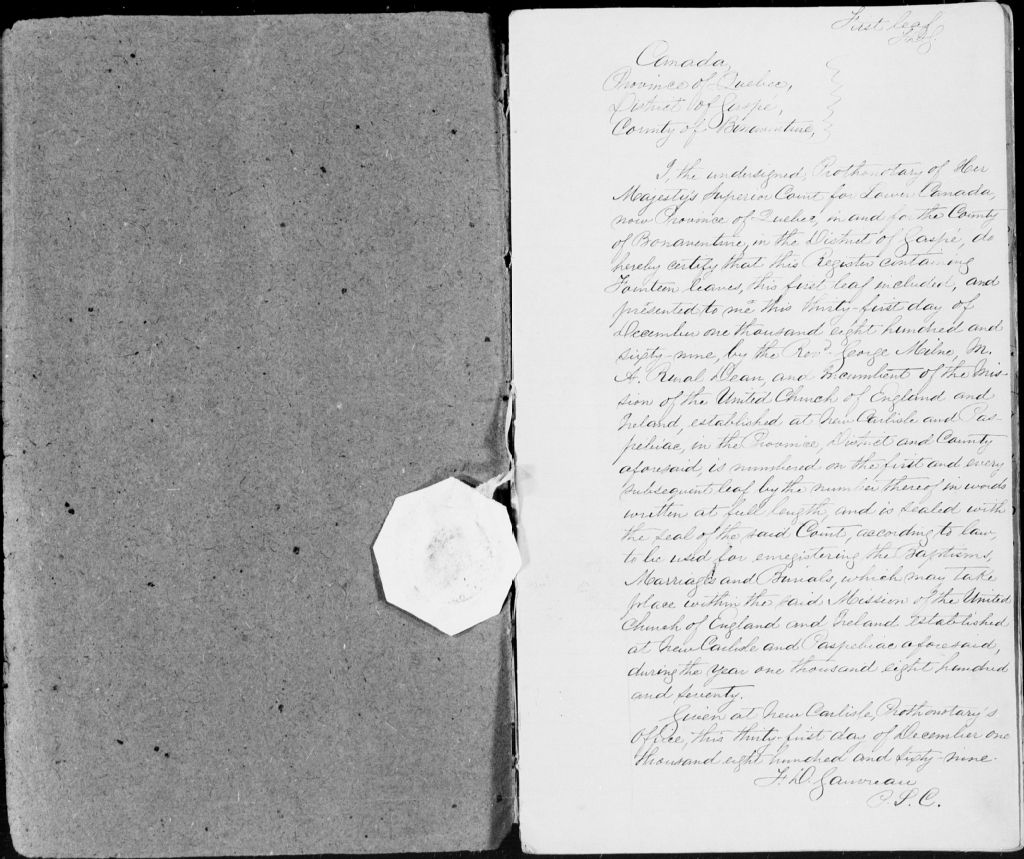 First leaf
Canada,
Province of Quebec,
District of Gaspé,
County of Bonaventure,
I, the undersigned, Prothonotary of Her
Majesty's Superior Court for Lower Canada,
now Province of Quebec, in and for the County
of Bonaventure, in the District of Gaspé, do
hereby certify that this Register containing
Fourteen leaves, this first leaf included, and
presented to me this thirty-first day of
December one thousand eight hundred and
sixty-nine, by the Revd. George Milne, M.
A. Rural Dean, and Incumbent of the Mis-
sion of the United Church of England and
Ireland, established at New Carlisle and Pas-
pebiac, in the Province, District and County
aforesaid, is numbered on the first and every
subsequent leaf by the number thereof in words
written at full length, and is sealed with
the seal of the said Court, according to law,
to be used for enregistering the Baptisms,
Marriages and Burials, which may take
place within the said Mission of the United
Church of England and Ireland established
at New Carlisle and Paspebiac aforesaid,
during the year one thousand eight hundred
and seventy.
Given at New Carlisle, Prothonotary's
Office, this thirty-first day of December one
thousand eight hundred and sixty-nine.
F. D. Gauvreau
P. S. C.